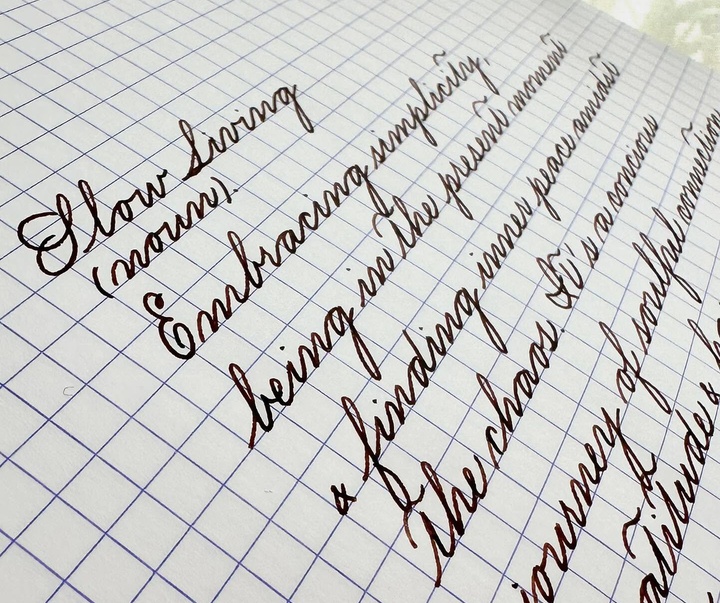 Slow Living
(noun).
Embracing simplicity,
being in the present moment
& finding inner peace amidst
the chaos. It's a concious
journey of soulful connection
&